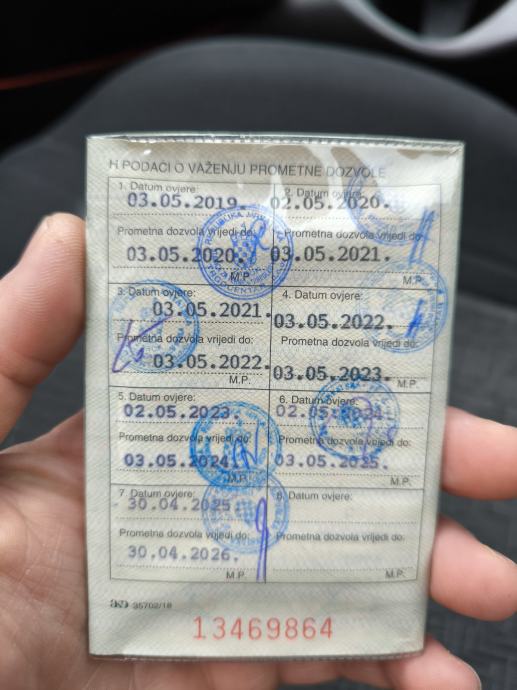 H PODACI O VAŽENJU PROMETNE DOZVOLE
1. Datum ovjere:
03.05.2019.
Prometna dozvola vrijedi do:
03.05.2020.
M.P.
2. Datum ovjere:
02.05.2020.
Prometna dozvola vrijedi do:
03.05.2021.
M.P.
3. Datum ovjere:
03.05.2021.
Prometna dozvola vrijedi do:
03.05.2022.
M.P.
4. Datum ovjere:
03.05.2022.
Prometna dozvola vrijedi do:
03.05.2023.
M.P.
5. Datum ovjere:
02.05.2023.
Prometna dozvola vrijedi do:
03.05.2024.
M.P.
6. Datum ovjere:
02.05.2024.
Prometna dozvola vrijedi do:
03.05.2025.
M.P.
7. Datum ovjere:
30.04.2025.
Prometna dozvola vrijedi do:
30.04.2026.
M.P.
8. Datum ovjere:
Prometna dozvola vrijedi do:
M.P.
35702/18
13469864